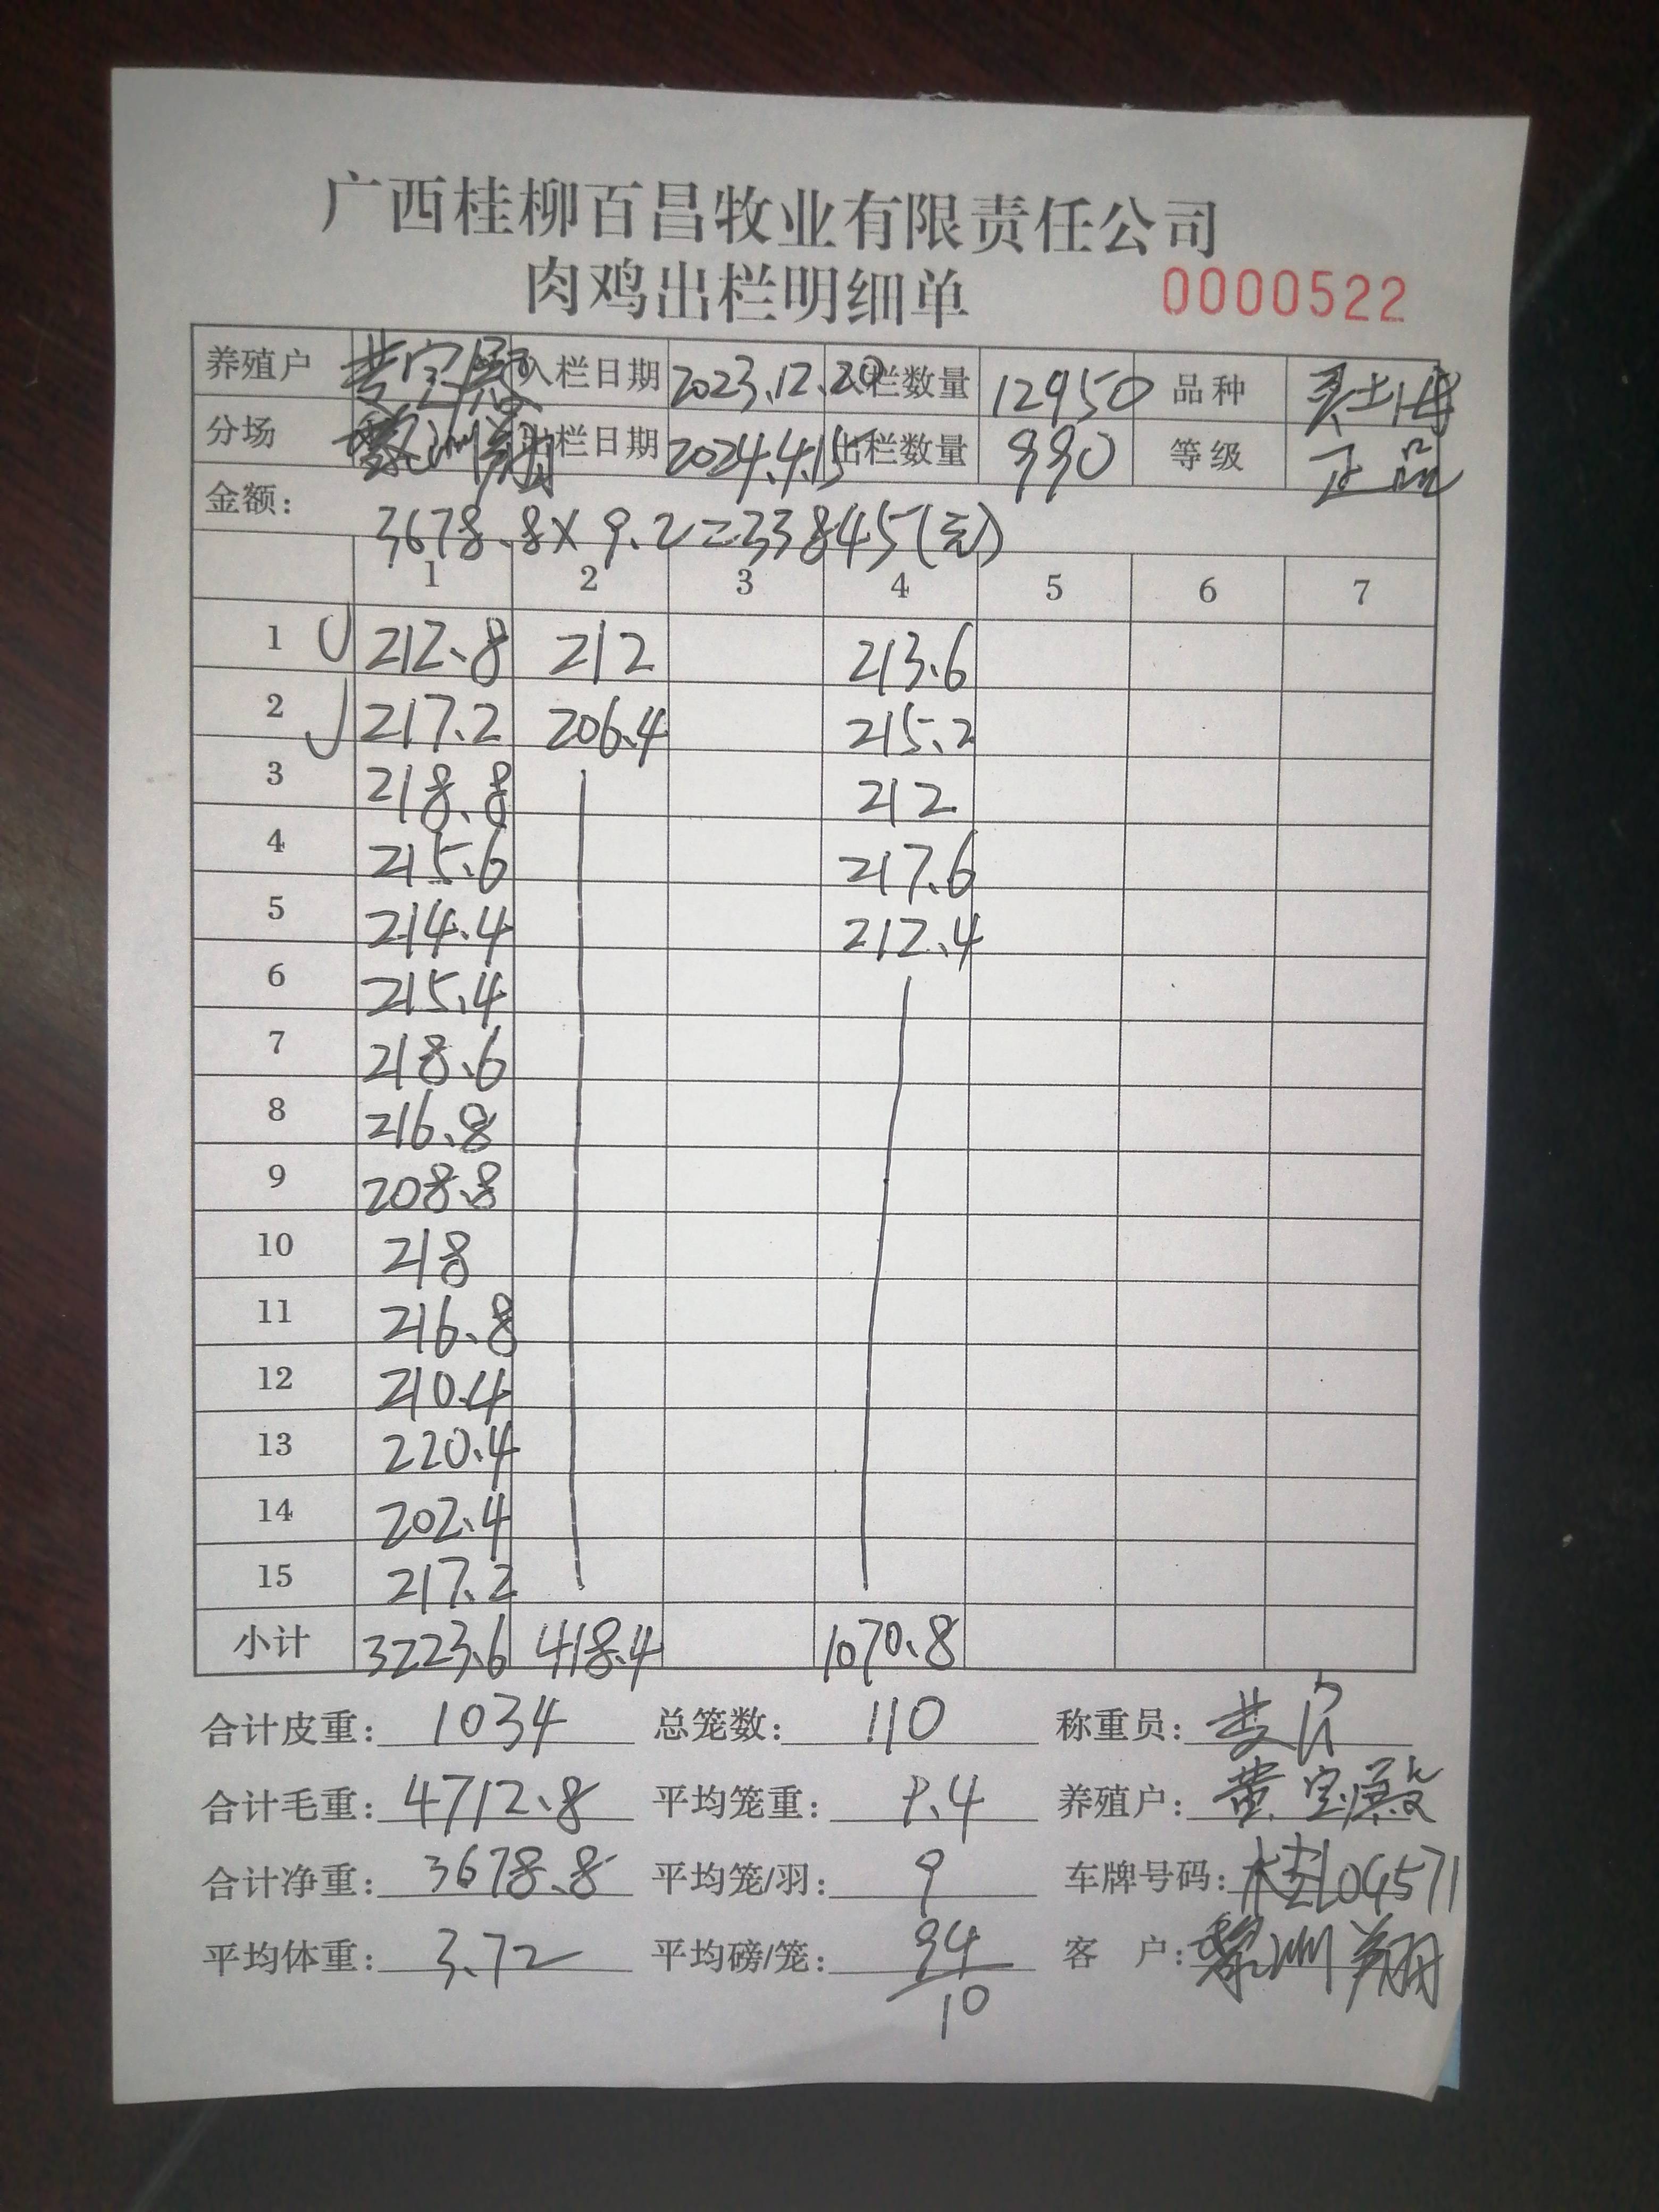 广西桂柳百昌牧业有限责任公司
肉鸡出栏明细单 0000522
养殖户 黄宝殿 入栏日期 2023.12.20 入栏数量 12950 品种 土
分场 黎洲翔 出栏日期 2024.4.15 出栏数量 990 等级 正品
金额: 3678.8×9.2=33845(元)
1 2 3 4 5 6 7
1 212.8 212 213.6
2 217.2 206.4 215.2
3 218.8 212
4 215.6 217.6
5 214.4 212.4
6 215.4
7 218.6
8 216.8
9 208.8
10 218
11 216.8
12 210.4
13 220.4
14 202.4
15 217.2
小计 3223.6 418.4 1070.8
合计皮重: 1034 总笼数: 110 称重员:
合计毛重: 4712.8 平均笼重: 9.4 养殖户: 黄宝殿
合计净重: 3678.8 平均笼/羽: 9 车牌号码: 桂L04571
平均体重: 3.72 平均磅/笼: 94/10 客户: 黎洲翔